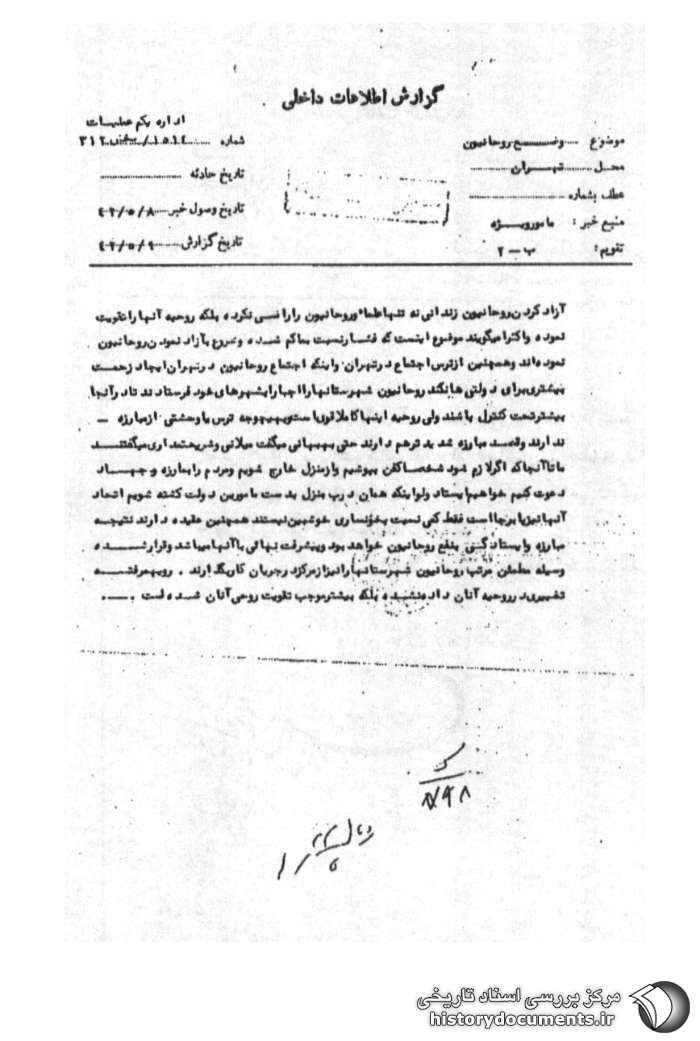 گزارش اطلاعات داخلی
اداره یکم عملیات
شماره ۱۵۱٤ / بخش ۳۱۲
تاریخ حادثه
تاریخ وصول خبر ٤۲/۵/۸
تاریخ گزارش ٤۲/۵/۹
موضوع وضع روحانیون
محل تهران
عطف بشماره
منبع خبر : مامور ویژه
تقویم : ب - ۲
آزاد کردن روحانیون زندانی نه تنها علماء و روحانیون را راضی نکرده بلکه روحیه آنها را تقویت
نموده و اکثرا میگویند موضوع اینست که فشار نسبت بما کم شده و شروع بآزاد نمودن روحانیون
نموده اند و همچنین از ترس اجتماع در تهران و اینکه اجتماع روحانیون در تهران ایجاد زحمت
بیشتری برای دولتی ها نکند روحانیون شهرستانها را اجبارا بشهرهای خود فرستادند تا در آنجا
بیشتر تحت کنترل باشند ولی روحیه اینها کاملا قوی است و بهیچوجه ترس یا وحشتی از مبارزه -
ندارند و قصد مبارزه شدیدتر هم دارند حتی بهبهانی میگفت میلانی و شریعتمداری میگفتند
ما تا آنجا که اگر لازم شود شخصا کفن بپوشیم و از منزل خارج شویم و مردم را بمبارزه و جهاد
دعوت کنیم خواهیم ایستاد ولو اینکه همان درب منزل بدست مامورین دولت کشته شویم اتحاد
آنها نیز پا برجا است فقط کمی نسبت بخونساری خوشبین نیستند همچنین عقیده دارند نتیجه
مبارزه و ایستادگی بنفع روحانیون خواهد بود و پیشرفت نهائی با آنها میباشد و قرار شده
وسیله مطمئن مرتب روحانیون شهرستانها را نیز از مرکز در جریان کار بگذارند . رویهمرفته
تغییری در روحیه آنان داده نشده بلکه بیشتر موجب تقویت روحی آنان شده است .
مرکز بررسی اسناد تاریخی
historydocuments.ir